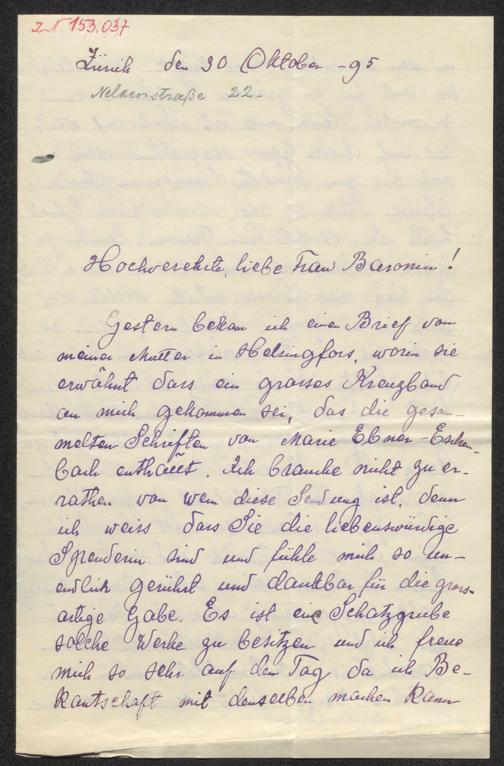 I.N. 153.037
Zürich den 30 Oktober -95
Nelkenstraße 22.
Hochverehrte, liebe Frau Baronin!
Gestern bekam ich einen Brief von
meiner Mutter in Helsingfors, worin sie
erwähnt dass ein grosses Kreuzband
an mich gekommen sei, das die gesam-
melten Schriften von Marie Ebner-Eschen-
bach enthaelt. Ich brauche nicht zu er-
rathen von wem diese Sendung ist, denn
ich weiss dass Sie die liebenswürdige
Spenderin sind und fühle mich so un-
endlich gerührt und dankbar für die gross-
artige Gabe. Es ist eine Schatzgrube
solche Werke zu besitzen und ich freue
mich so sehr auf den Tag da ich Be-
kantschaft mit denselben machen kann